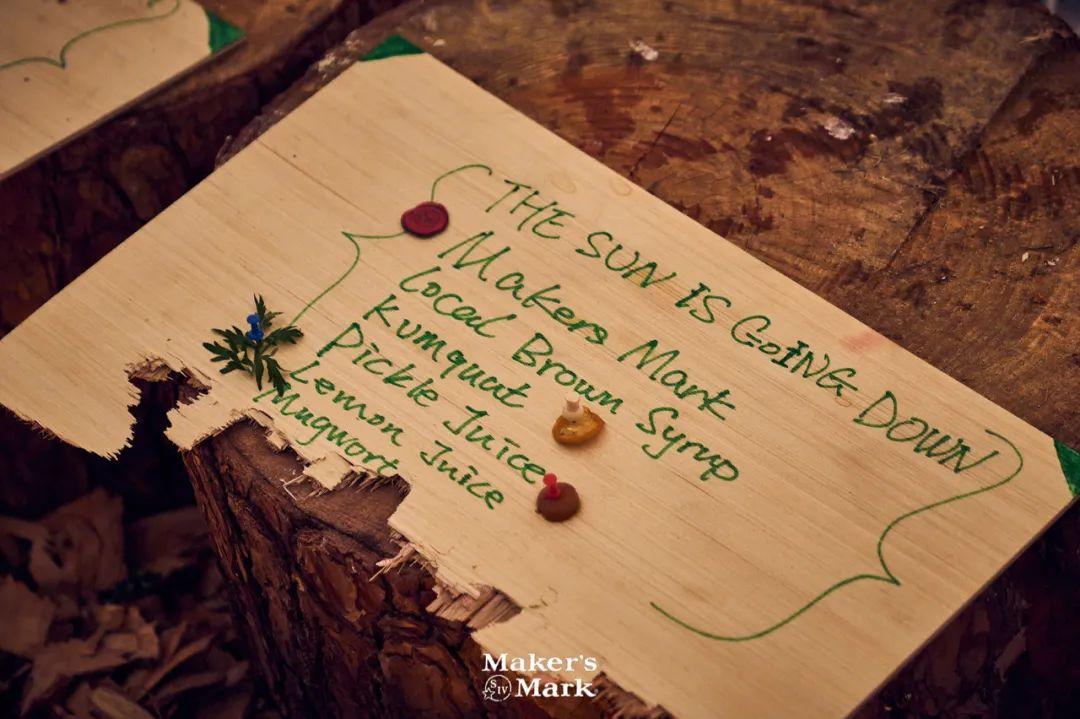 THE SUN IS GOING DOWN
Makers Mark
Local Brown Syrup
Kumquat
Pickle Juice
Lemon Juice
Mugwort
Maker's
SIV Mark